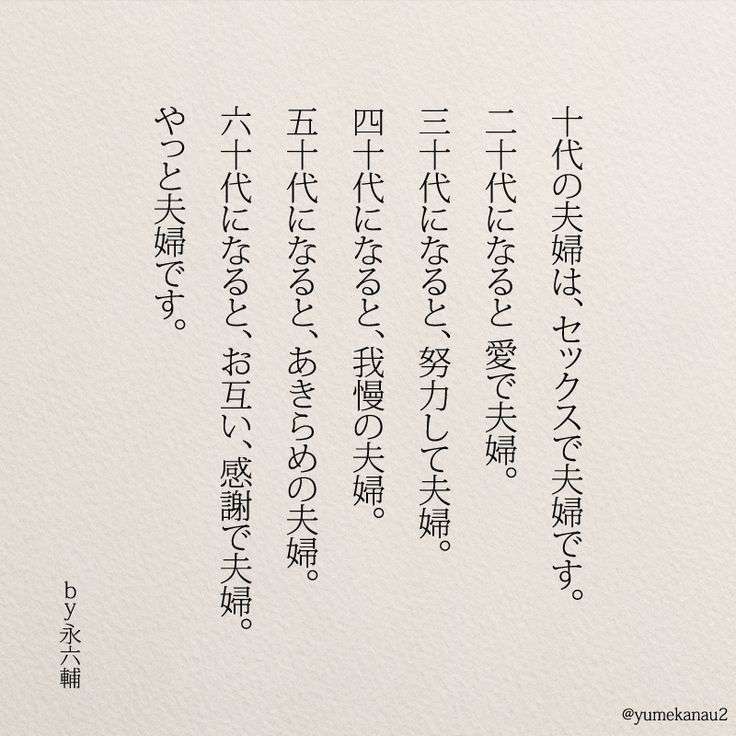 十代の夫婦は、セックスで夫婦です。
二十代になると 愛で夫婦。
三十代になると、努力して夫婦。
四十代になると、我慢の夫婦。
五十代になると、あきらめの夫婦。
六十代になると、お互い、感謝で夫婦。
やっと夫婦です。
by永六輔
@yumekanau2